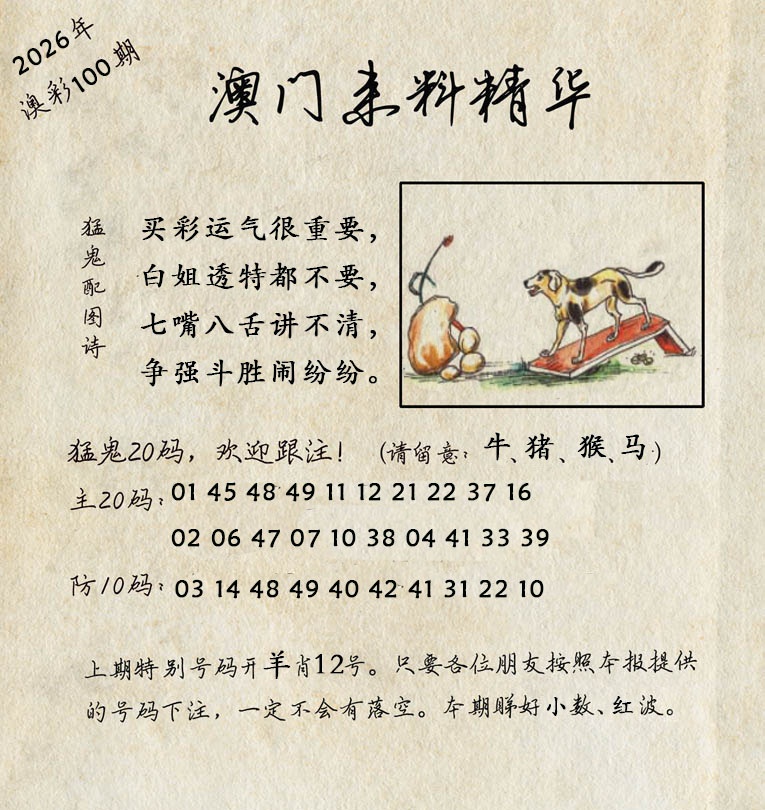 2026年
澳彩100期
澳门来料精华
猛鬼配图诗
买彩运气很重要，
白姐透特都不要，
七嘴八舌讲不清，
争强斗胜闹纷纷。
猛鬼20码，欢迎跟注！（请留意：牛、猪、猴、马）
主20码：01 45 48 49 11 12 21 22 37 16
02 06 47 07 10 38 04 41 33 39
防10码：03 14 48 49 40 42 41 31 22 10
上期特别号码开羊肖12号。只要各位朋友按照本报提供
的号码下注，一定不会有落空。本期睇好小数、红波。